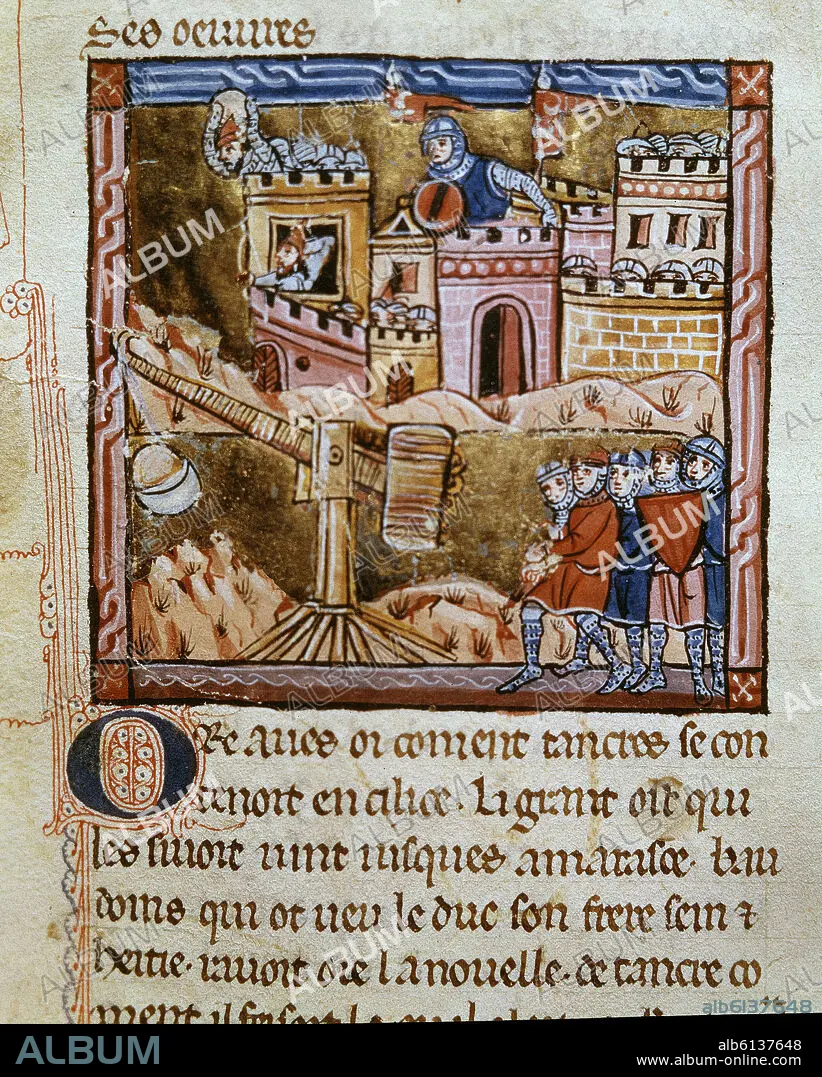 Ses oeuures
ORe aues oi coment tancres se con
tenoit en cilice. Li grant ost qui
les siuoit uint iusques a marasce. bau
doins qui ot ueu le duc son frere sein &
heitie. rauoit oie la nouelle. de tancre co
ment il
alb6137648
ALBUM
alb6137648
www.album-online.com